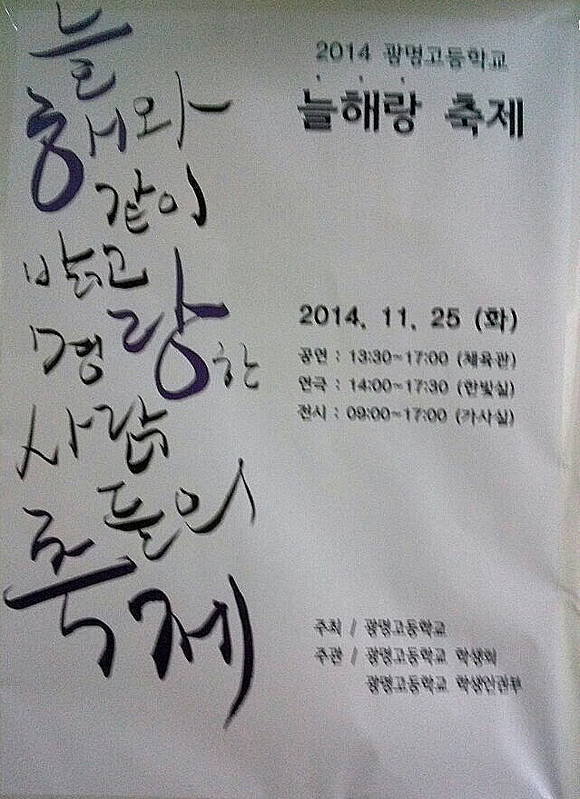 늘
해와
같이
밝고
명랑한
사람
들의
축제
2014 광명고등학교
늘해랑 축제
2014. 11. 25 (화)
공연 : 13:30~17:00 (체육관)
연극 : 14:00~17:30 (한빛실)
전시 : 09:00~17:00 (가사실)
주최 / 광명고등학교
주관 / 광명고등학교 학생회
광명고등학교 학생인권부